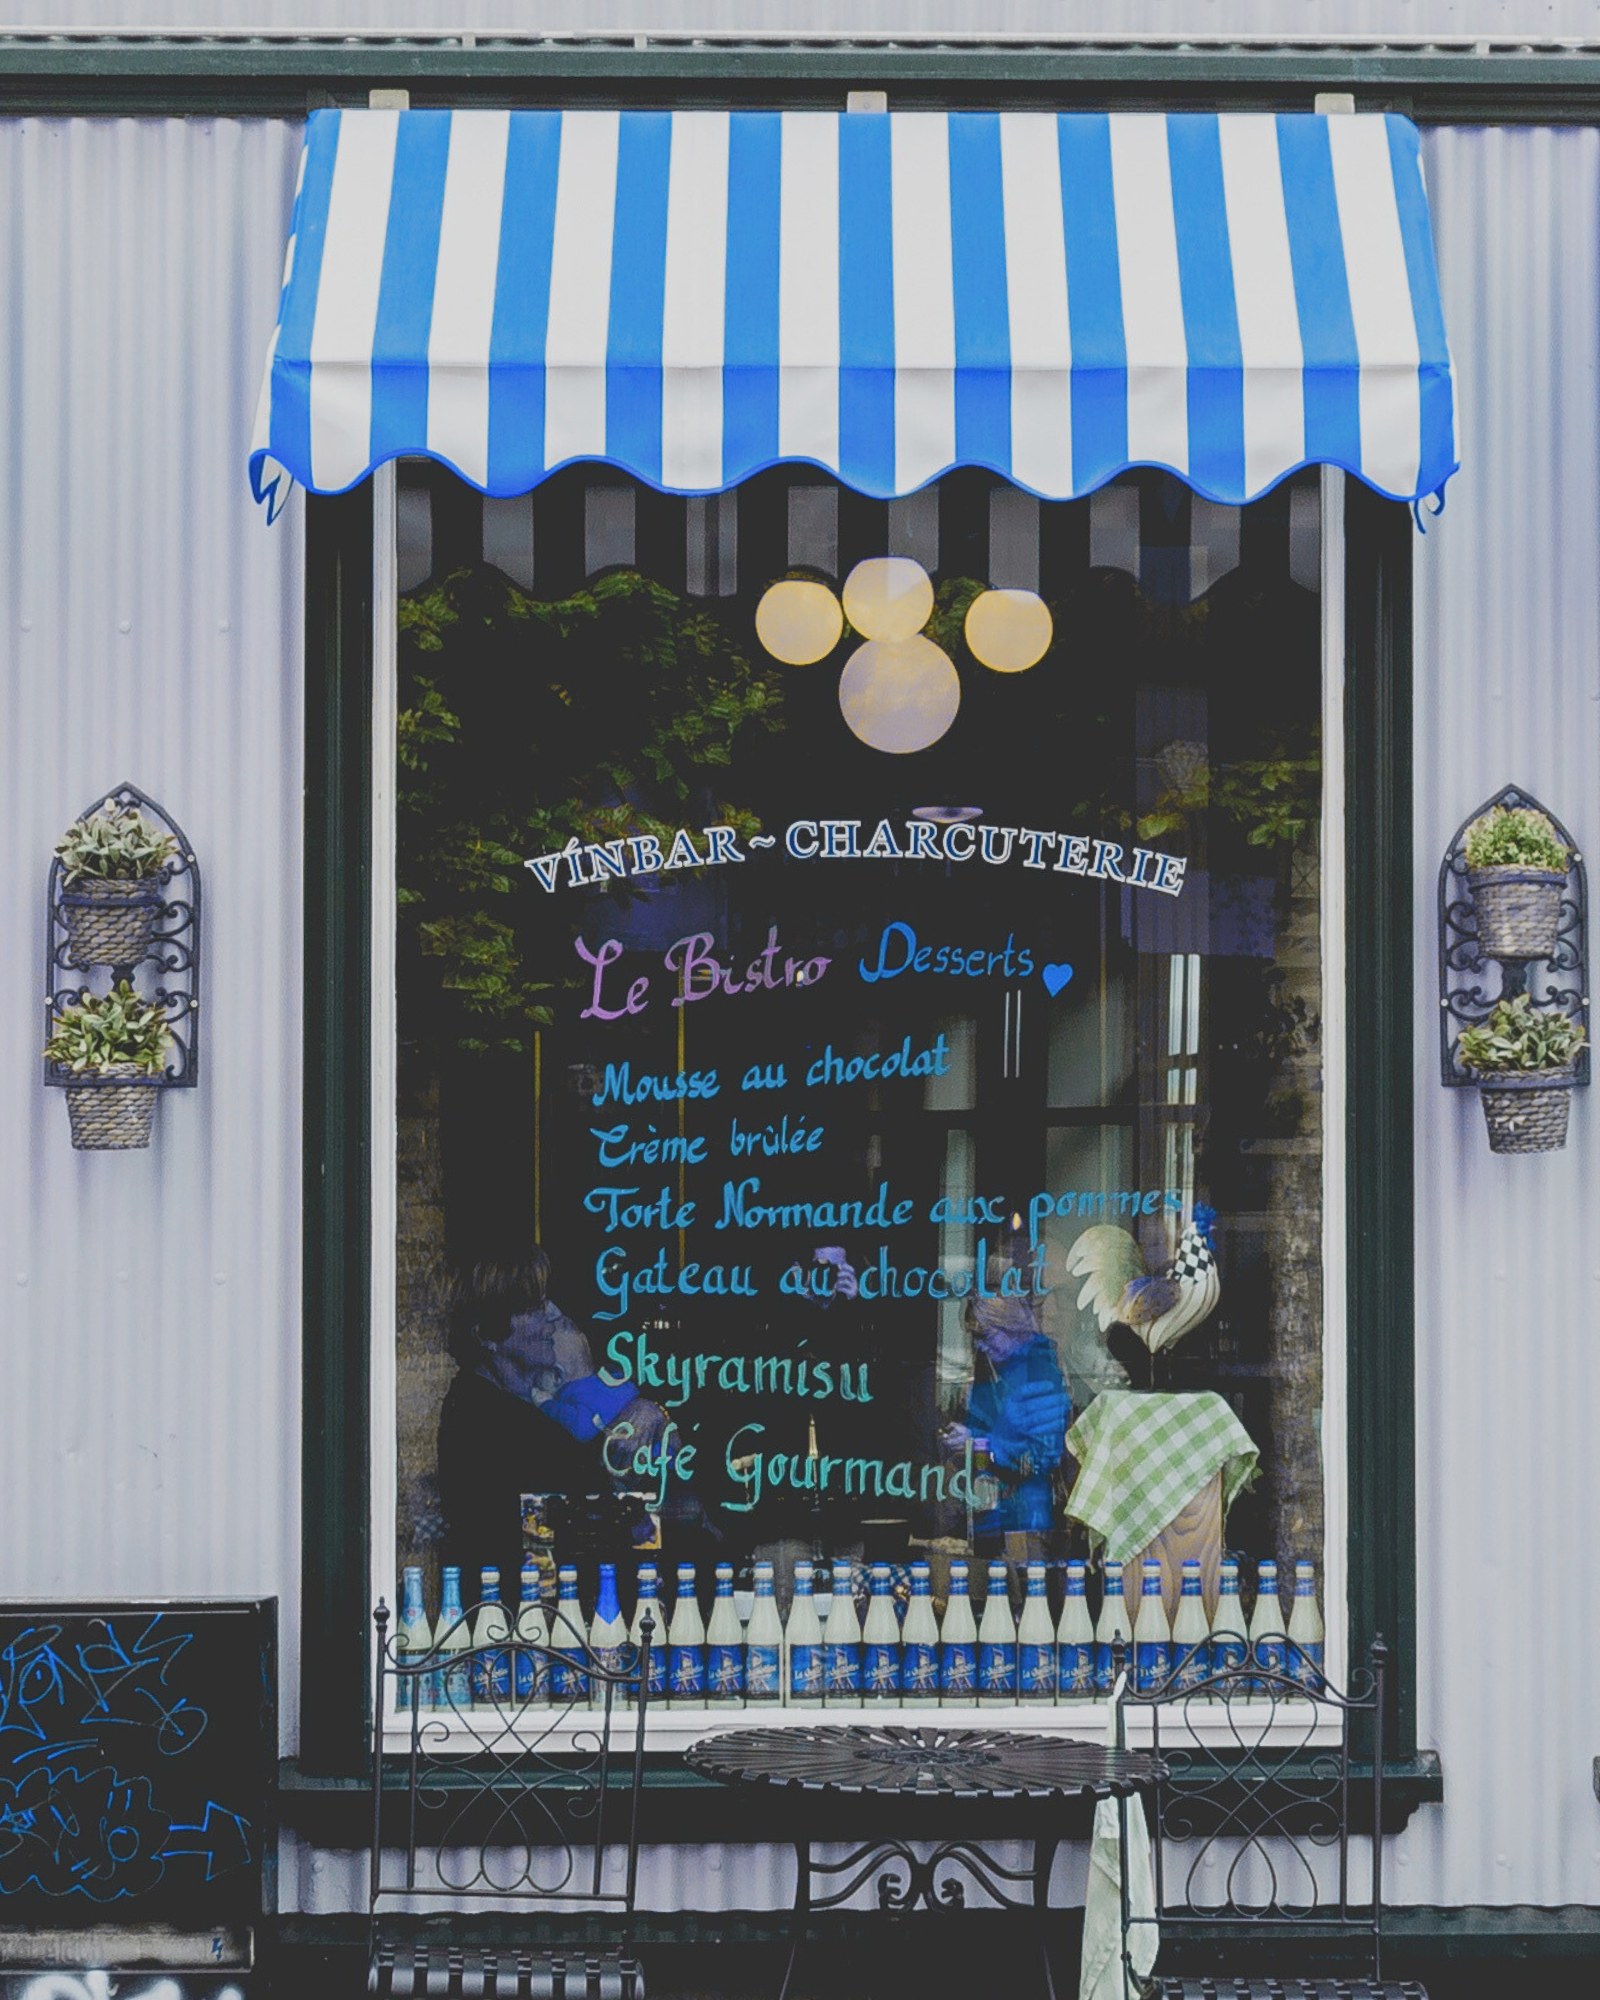 VÍNBAR ~ CHARCUTERIE
Le Bistro Desserts
Mousse au chocolat
Crème brûlée
Torte Normande aux pommes
Gateau au chocolat
Skyramisu
Café Gourmand